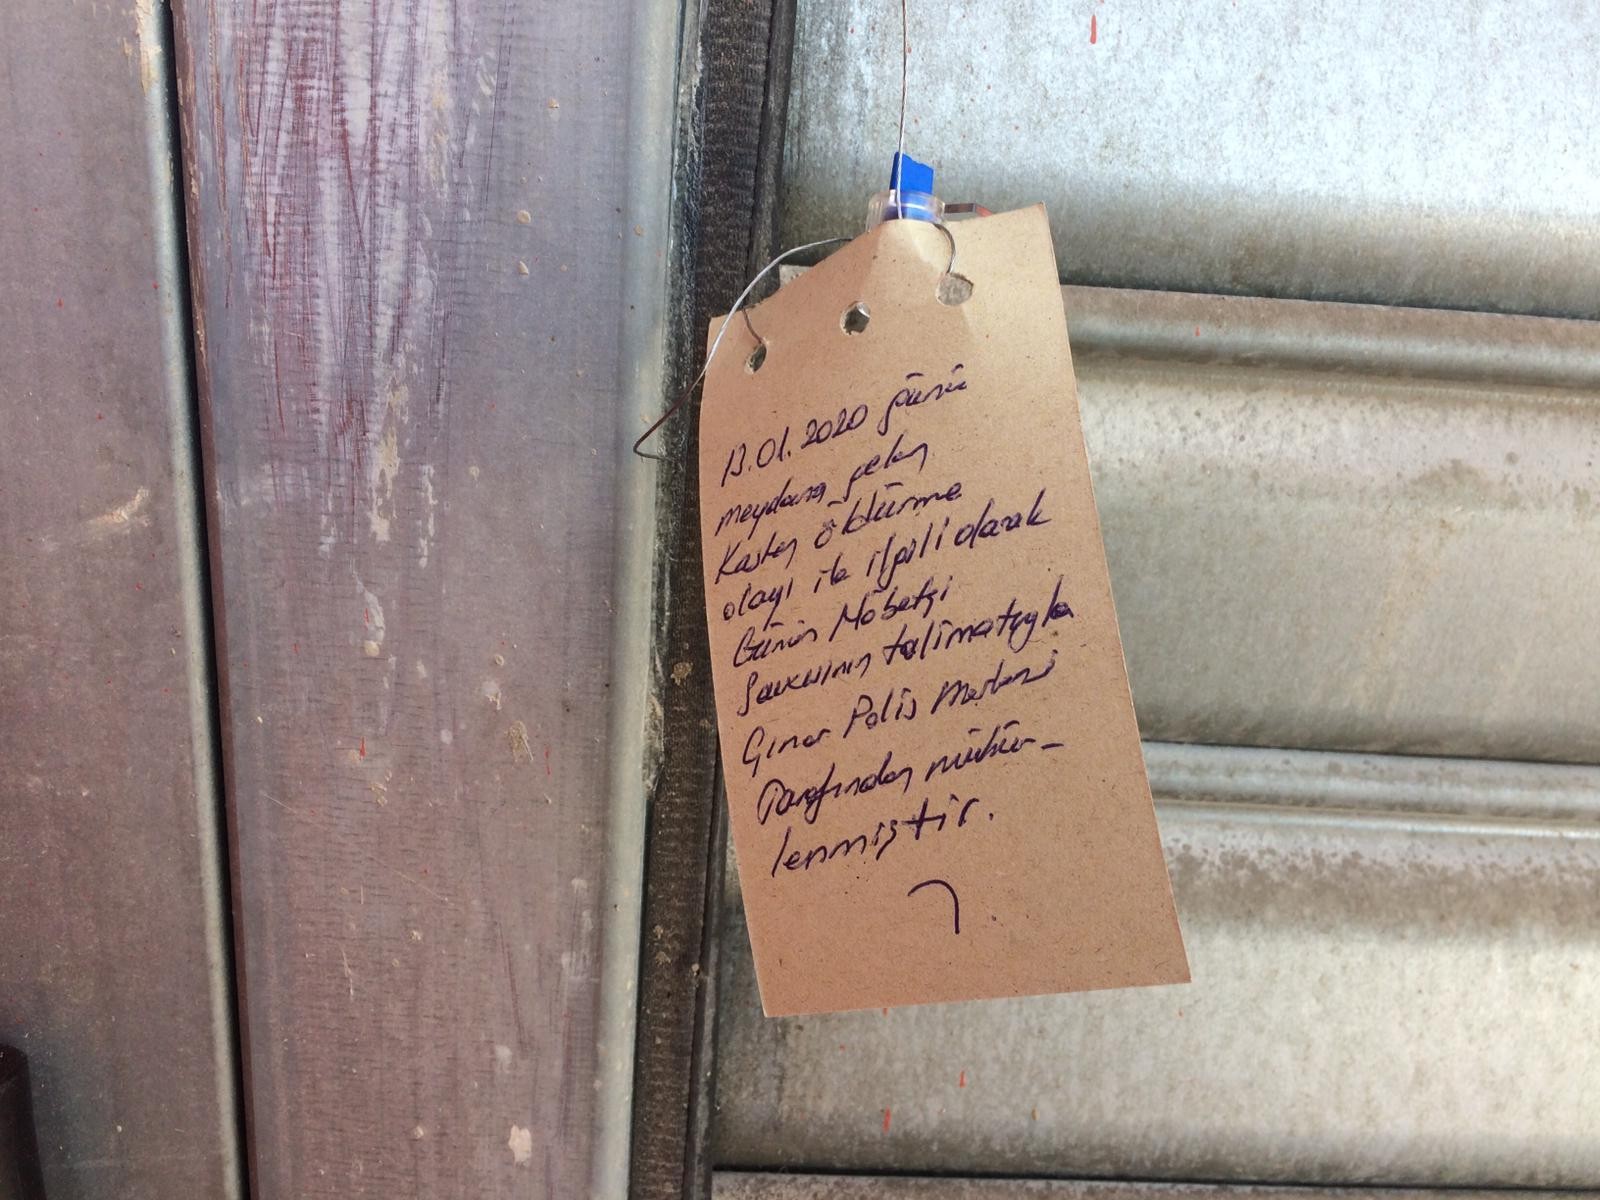 13.01.2020 günü
meydana gelen
Kasten öldürme
olayı ile ilgili olarak
Günün Nöbetçi
Savcısının talimatıyla
Çınar Polis Merkezi
Tarafından mühür-
lenmiştir.